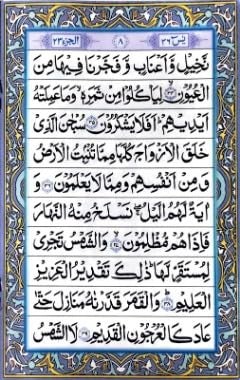 یٰسٓ ۳۶ ۸ الجزء ۲۳
نَّخِیْلٍ وَّ اَعْنَابٍ وَّ فَجَّرْنَا فِیْهَا مِنَ
الْعُیُوْنِ ﴿۳۴﴾ لِیَاْكُلُوْا مِنْ ثَمَرِهٖ وَ مَا عَمِلَتْهُ
اَیْدِیْهِمْ ؕ اَفَلَا یَشْكُرُوْنَ ﴿۳۵﴾ سُبْحٰنَ الَّذِیْ
خَلَقَ الْاَزْوَاجَ كُلَّهَا مِمَّا تُنْۢبِتُ الْاَرْضُ
وَ مِنْ اَنْفُسِهِمْ وَ مِمَّا لَا یَعْلَمُوْنَ ﴿۳۶﴾ وَ
اٰیَةٌ لَّهُمُ الَّیْلُ ۖۚ نَسْلَخُ مِنْهُ النَّهَارَ
فَاِذَا هُمْ مُّظْلِمُوْنَ ﴿۳۷﴾ وَ الشَّمْسُ تَجْرِیْ
لِمُسْتَقَرٍّ لَّهَا ؕ ذٰلِكَ تَقْدِیْرُ الْعَزِیْزِ
الْعَلِیْمِ ﴿۳۸﴾ وَ الْقَمَرَ قَدَّرْنٰهُ مَنَازِلَ حَتّٰی
عَادَ كَالْعُرْجُوْنِ الْقَدِیْمِ ﴿۳۹﴾ لَا الشَّمْسُ